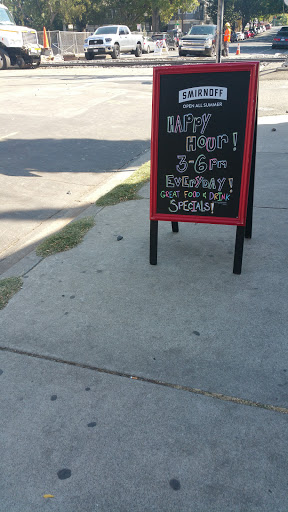 SMIRNOFF
OPEN ALL SUMMER
HAPPY
HOUR!
3-6pm
EVERYDAY!
GREAT FOOD & DRINK
SPECIALS!